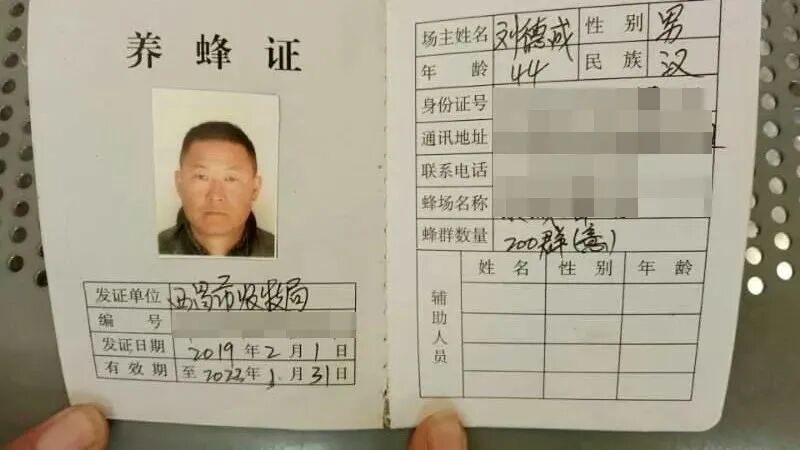 养蜂证
发证单位 西昌市农牧局
编号
发证日期 2019年2月1日
有效期 至2022年1月31日
场主姓名 刘德成 性别 男
年龄 44 民族 汉
身份证号
通讯地址
联系电话
蜂场名称
蜂群数量 200群(意)
辅助人员 姓名 性别 年龄